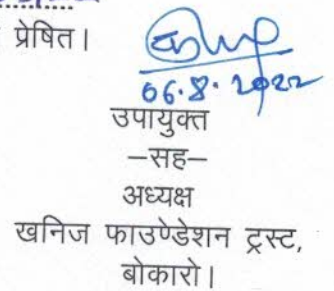 प्रेषित।
06.8.2022
उपायुक्त
–सह–
अध्यक्ष
खनिज फाउण्डेशन ट्रस्ट,
बोकारो।